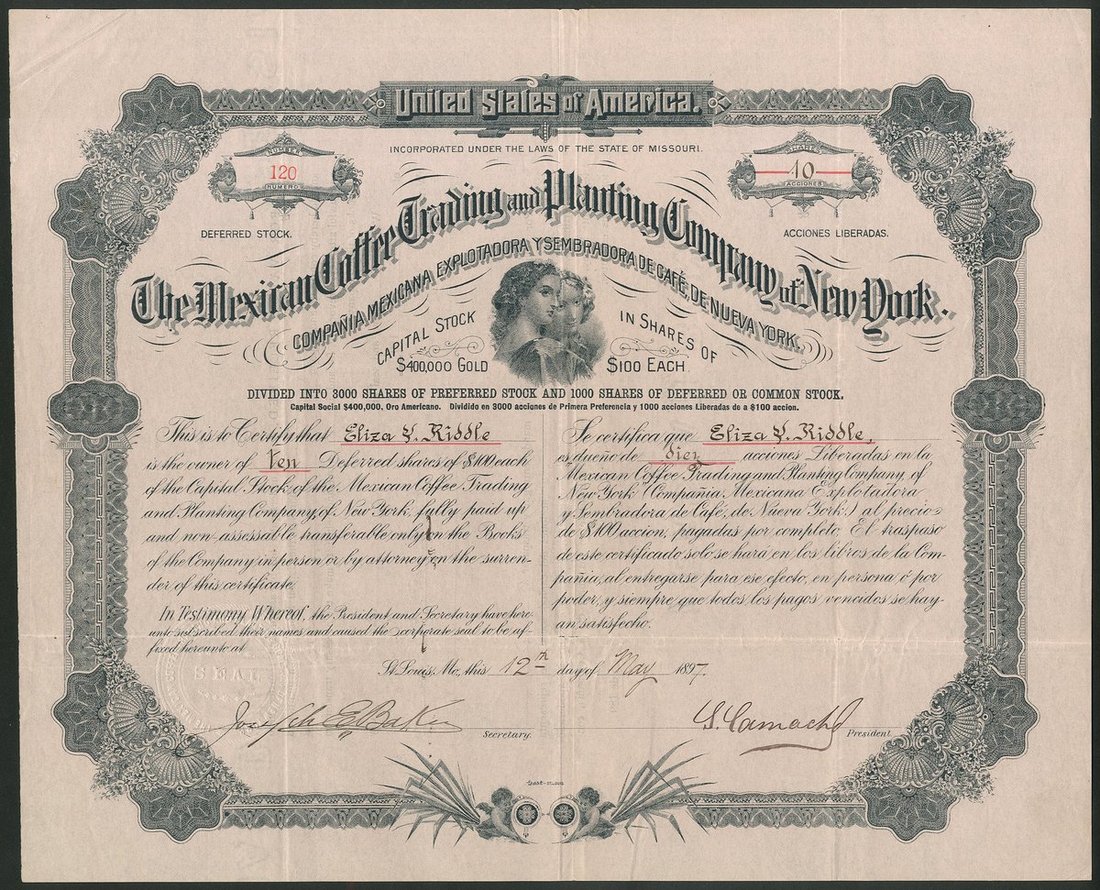 United States of America.
INCORPORATED UNDER THE LAWS OF THE STATE OF MISSOURI.
120
NUMERO
10
ACCIONES
DEFERRED STOCK.
ACCIONES LIBERADAS.
The Mexican Coffee Trading and Planting Company of New York.
COMPAÑIA MEXICANA EXPLOTADORA Y SEMBRADORA DE CAFÉ, DE NUEVA YORK.
CAPITAL STOCK
$400,000 GOLD
IN SHARES OF
$100 EACH
DIVIDED INTO 3000 SHARES OF PREFERRED STOCK AND 1000 SHARES OF DEFERRED OR COMMON STOCK.
Capital Social $400,000, Oro Americano. Dividido en 3000 acciones de Primera Preferencia y 1000 acciones Liberadas de a $100 accion.
This is to Certify that Eliza Y. Riddle
is the owner of ten Deferred shares of $100 each
of the Capital Stock, of the Mexican Coffee Trading
and Planting Company, of New York, fully paid up
and non-assessable transferable only on the Books
of the Company in person or by attorney on the surren-
der of this certificate.
In Testimony Whereof, the President and Secretary have here
unto subscribed their names and caused the corporate seal to be af-
fixed hereunto at
Se certifica que Eliza Y. Riddle,
es dueño de diez acciones Liberadas en la
Mexican Coffee Trading and Planting Company, of
New York (Compañia Mexicana Explotadora
y Sembradora de Café, de Nueva York.) al precio
de $100 accion, pagadas por completo. El traspaso
de este certificado solo se hará en los libros de la Com-
pañia, al entregarse para ese efecto, en persona ó por
poder, y siempre que todos los pagos vencidos se hay-
an satisfecho.
St. Louis, Mo, this 12th day of May 1897.
SEAL
Joseph E. Baker
Secretary.
S. Camacho
President